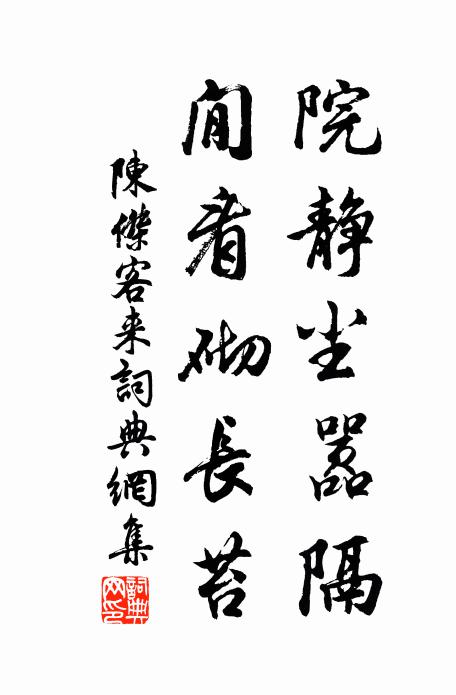 院静尘嚣隔
閒看砌長苔
陳傑客来詞典網集
詞典网印